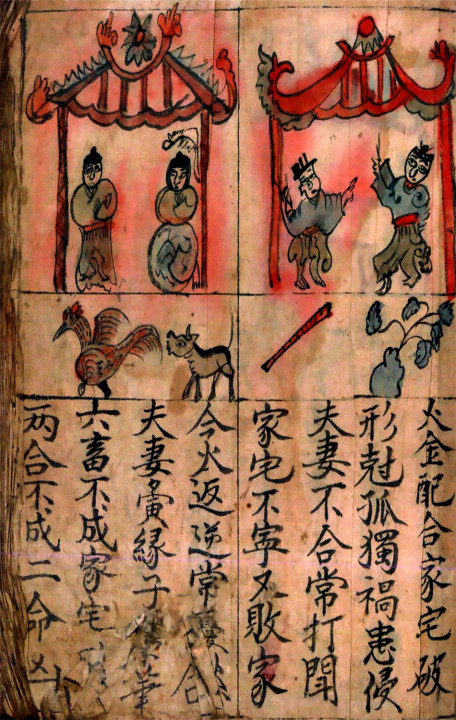 火金配合家宅破
形尅孤獨禍患侵
夫妻不合常打鬧
家宅不寧又敗家
令火返逆常合
夫妻寅緣子華
六畜不成家宅
两合不成二命凶